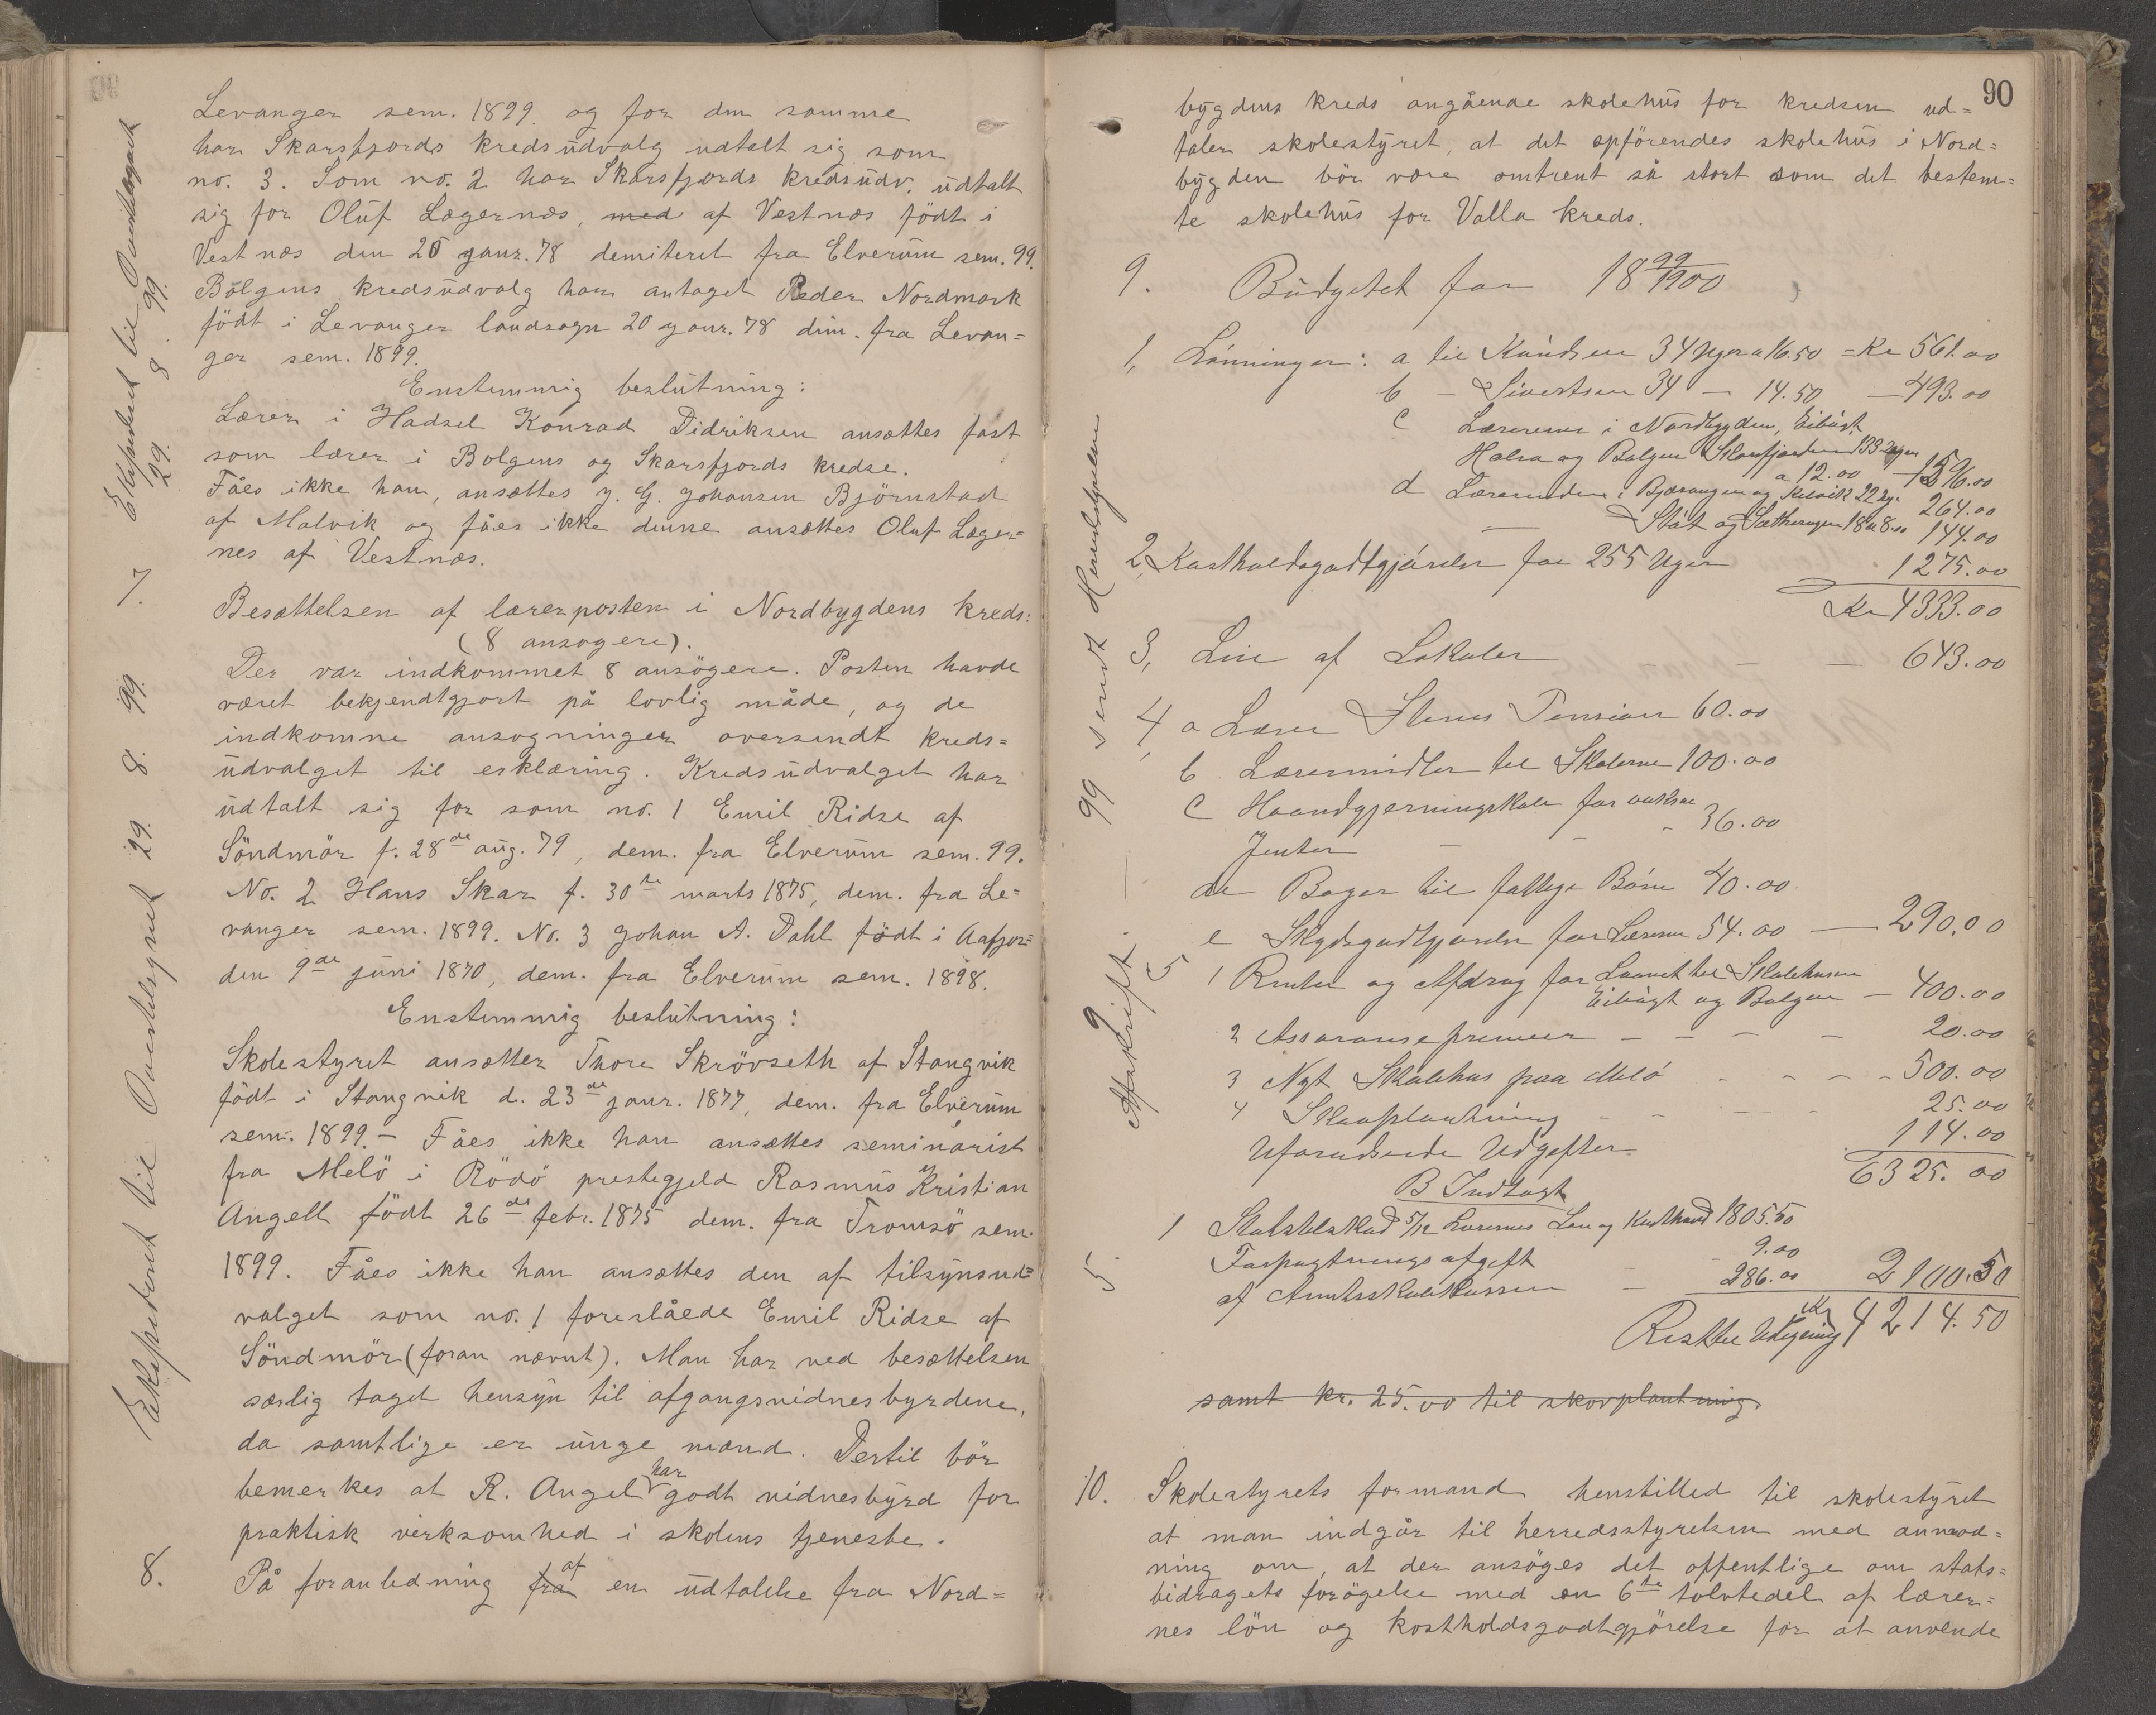 Levanger sem. 1899. og for den samme
har Skarsfjords kredsudvalg udtalt sig som
no. 3. Som no. 2 har Skarsfjords kredsudv. udtalt
sig for Oluf Lægernæs, med af Vestnæs födt i
Vestnæs den 20 janr. 78 demiteret fra Elverum sem. 99.
Bolgens kredsudvalg har antaget Peder Nordmark
födt i Levanger landsogn 20 janr. 78 dim. fra Levan=
ger sem. 1899.
Enstemmig beslutning:
Lærer i Hadsel Konrad Didriksen ansættes fast
som lærer i Bolgens og Skarsfjords kredse.
Fåes ikke han, ansættes J. G. Johansen Björnstad
af Malvik og fåes ikke denne ansættes Oluf Læger=
nes af Vestnæs.
Ekspederet til
29. 8. 99.
7.
Besættelsen af lærerposten i Nordbygdens kreds:
(8 ansogere).
Der var indkommet 8 ansögere. Posten havde
været bekjendtgjort på lovlig måde, og de
indkomne ansogninger oversendt kreds=
udvalget til erklæring. Kredsudvalget har
udtalt sig for som no. 1 Emil Ridse af
Söndmör f. 28de aug. 79, dem. fra Elverum sem. 99.
No. 2 Hans Skar f. 30te marts 1875, dem. fra Le=
vanger sem. 1899. No. 3 Johan A. Dahl födt i Aafjor=
den 9de juni 1870, dem. fra Elverum sem. 1898.
Enstemmig beslutning:
Skolestyret ansætter Thore Skrövseth af Stangvik
födt i Stangvik d. 23de janr. 1877, dem. fra Elverum
sem. 1899. – Fåes ikke han ansættes seminarist
fra Melö i Rödö prestegjeld Rasmus Kristian
Angell födt 26de febr. 1875 dem. fra Tromsö sem.
1899. Fåes ikke han ansættes den af tilsynsud=
valget som no. 1 foreslåede Emil Ridse af
Söndmör (foran nævnt). Man har ved besættelsen
særlig taget hensyn til afgangsvidnesbyrdene,
da samtlige er unge mænd. Dertil bör
bemerkes at R. Angel har godt vidnesbyrd for
praktisk virksomhed i skolens tjeneste.
Ekspederet til 29. 8. 99.
8.
På foranledning fra af en udtalelse fra Nord=
90
bygdens kreds angående skolehus for kredsen ud=
taler skolestyret, at det opförendes skolehus i Nord=
bygden bör være omtrent så stort som det bestem=
te skolehus for Valla kreds.
9. Budgetet for 1899/1900
1, Lönninger: a til Knudsen 34 Uger a 16.50 = Kr 561.00
b – Sivertsen 34 – 14.50 – 493.00
c Lærerne i Nordbygden, Eibugt,
Halsa og Bolgen Skarsfjorden 133 Uger
a 12.00 – 1596.00
d Læreren i Bjærangen og Kilvik 22 Ug. 264.00
Støt og Sætherangen 18 a 8.00 144.00
2, Kostholdsgodtgjörelse for 255 Uger 1275.00
Kr 4333.00
3, Leie af Lokaler – – – 643.00
4, a Lærer Stenes Pension 60.00
b Læremidler til Skolerne 100.00
c Haandgjerningskole for voksne
Jenter – – – 36.00
d Boger til fattige Börn 40.00
e Skydsgodtgjörelse for Lærerne 54.00 — 290.00
5 1 Renter og Afdrag for Laanet til Skolehusene
Eibugt og Bolgen – 400.00
2 Assuransepremier – – – – 20.00
3 Nyt Skolehus paa Melö – – – 500.00
4 Skovplantning – – – – 25.00
Uforudseede Udgifter 114.00
6325.00
B Indtægt
1 Statstilskud 5/12 Lærernes Løn og Kosthold 1805.50
Forpagtningsafgift 9.00
af Amtsskolekassen – 286.00 2100.50
Rest til Udligning Kr 4214.50
samt kr. 25.00 til skovplantning.
5. Afskrift 99 sendt Herredstyrelsen
10. Skolestyrets formand henstilled til skolestyret
at man indgår til herredsstyrelsen med anmod=
ning om, at der ansöges det offentlige om stats=
bidragets forögelse med en 6te tolvtedel af lærer=
nes lön og kostholdsgodtgjörelse for at anvende